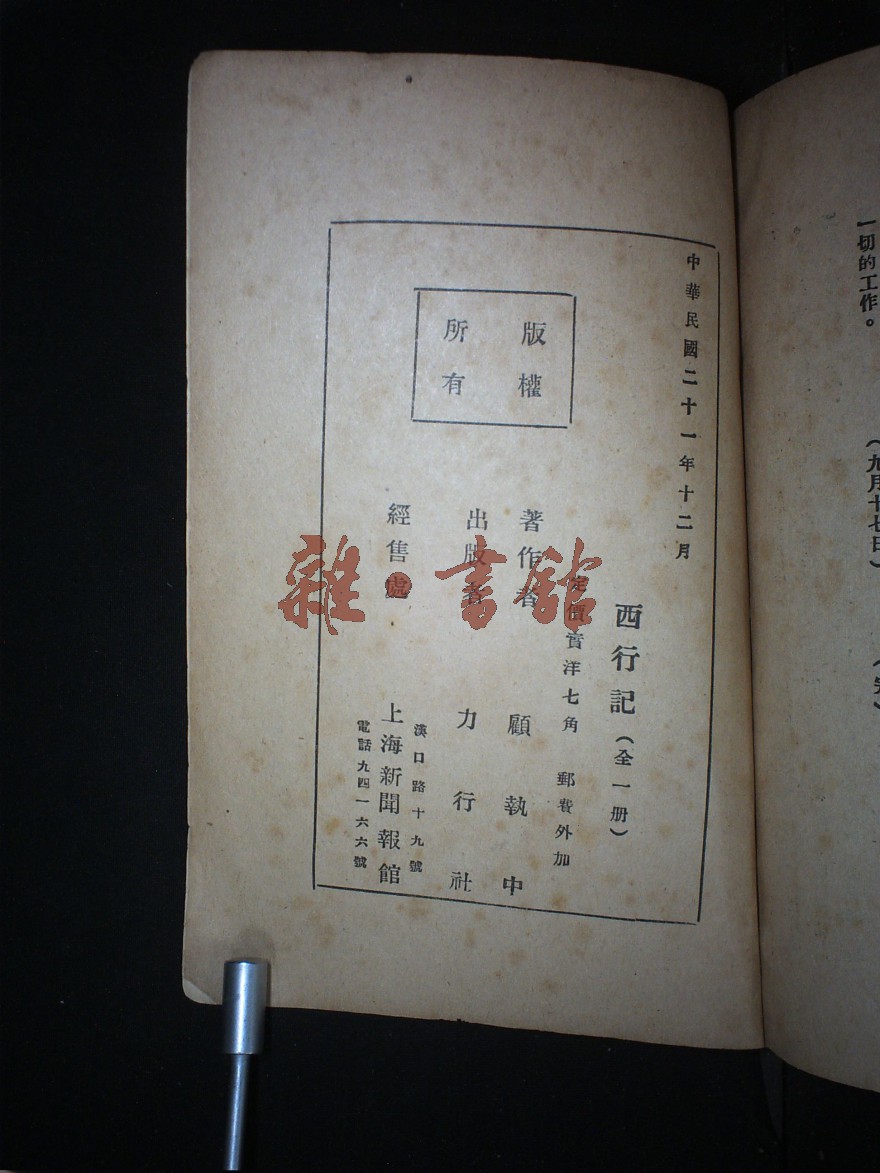 一切的工作。
（九月十七日）
（完）
中華民國二十一年十二月
西行記（全一册）
定價實洋七角　郵費外加
著作者　顧執中
出版者　力行社
經售處　上海新聞報館
漢口路十九號
電話九四一六六號
版權
所有
雜·書館